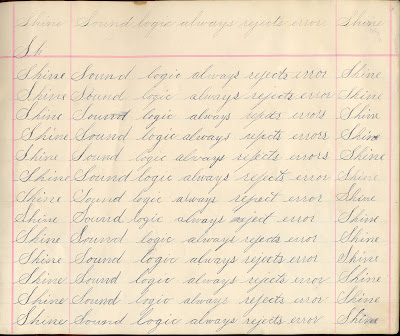 Shine Sound logic always rejects error Shine
Sh
Shine Sound logic always rejects error Shine
Shine Sound logic always rejects error Shine
Shine Sound logic always rejects errors Shine
Shine Sound logic always rejects errors Shine
Shine Sound logic always rejects errors Shine
Shine Sound logic always rejects error Shine
Shine Sound logic always reject error Shine
Shine Sound logic always reject error Shine
Shine Sound logic always rejects error Shine
Shine Sound logic always rejects error Shine
Shine Sound logic always rejects error Shine
Shine Sound logic always rejects error Shine
Shine Sound logic always rejects error Shine